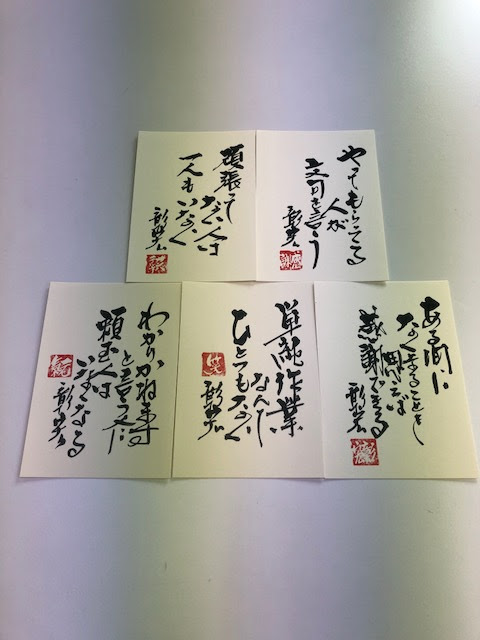 頑張って
ない人は
一人も
いない
やってもらってる
人が
文句を言う
わかりかねます
と言う人に
頼む人は
いなくなる
単純作業
なんて
ひとつもない
ある間に
なくなることを
思えば
感謝できる